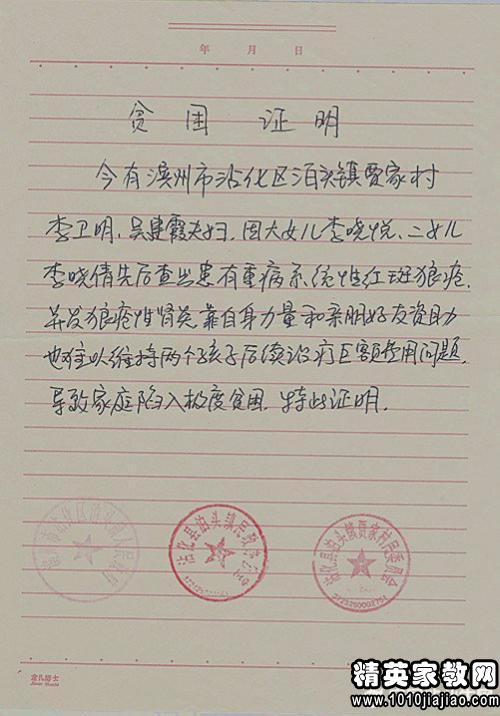 年 月 日
贫困证明
今有滨州市沾化区泊头镇贾家村
李卫明、吴建霞夫妇，因大女儿李晓悦、二女儿
李晓倩先后查出患有重病系统性红斑狼疮，
并发狼疮性肾炎，靠自身力量和亲朋好友资助
也难以维持两个孩子后续治疗巨额费用问题，
导致家庭陷入极度贫困，特此证明。
沾化县泊头镇民政办公室
沾化县泊头镇贾家村村民委员会
3723260002751
精英家教网
www.1010jiajiao.com